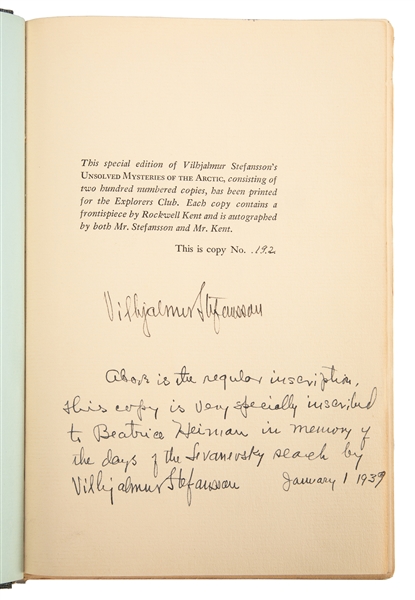 This special edition of Vilhjalmur Stefansson's
UNSOLVED MYSTERIES OF THE ARCTIC, consisting of
two hundred numbered copies, has been printed
for the Explorers Club. Each copy contains a
frontispiece by Rockwell Kent and is autographed
by both Mr. Stefansson and Mr. Kent.
This is copy No. .192.
Vilhjalmur Stefansson
Above is the regular inscription,
this copy is very specially inscribed
to Beatrice Heiman in memory of
the days of the Levanevsky search by
Vilhjalmur Stefansson January 1 1939